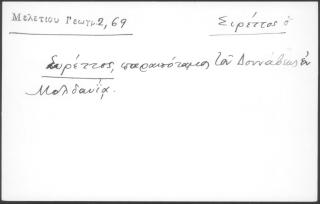 Μελετίου Γεωγρ. 2, 69
Σιρέττος ὁ
Συρέττος, παραπόταμος τοῦ Δουνάβεως ἐν
Μολδαυΐᾳ.